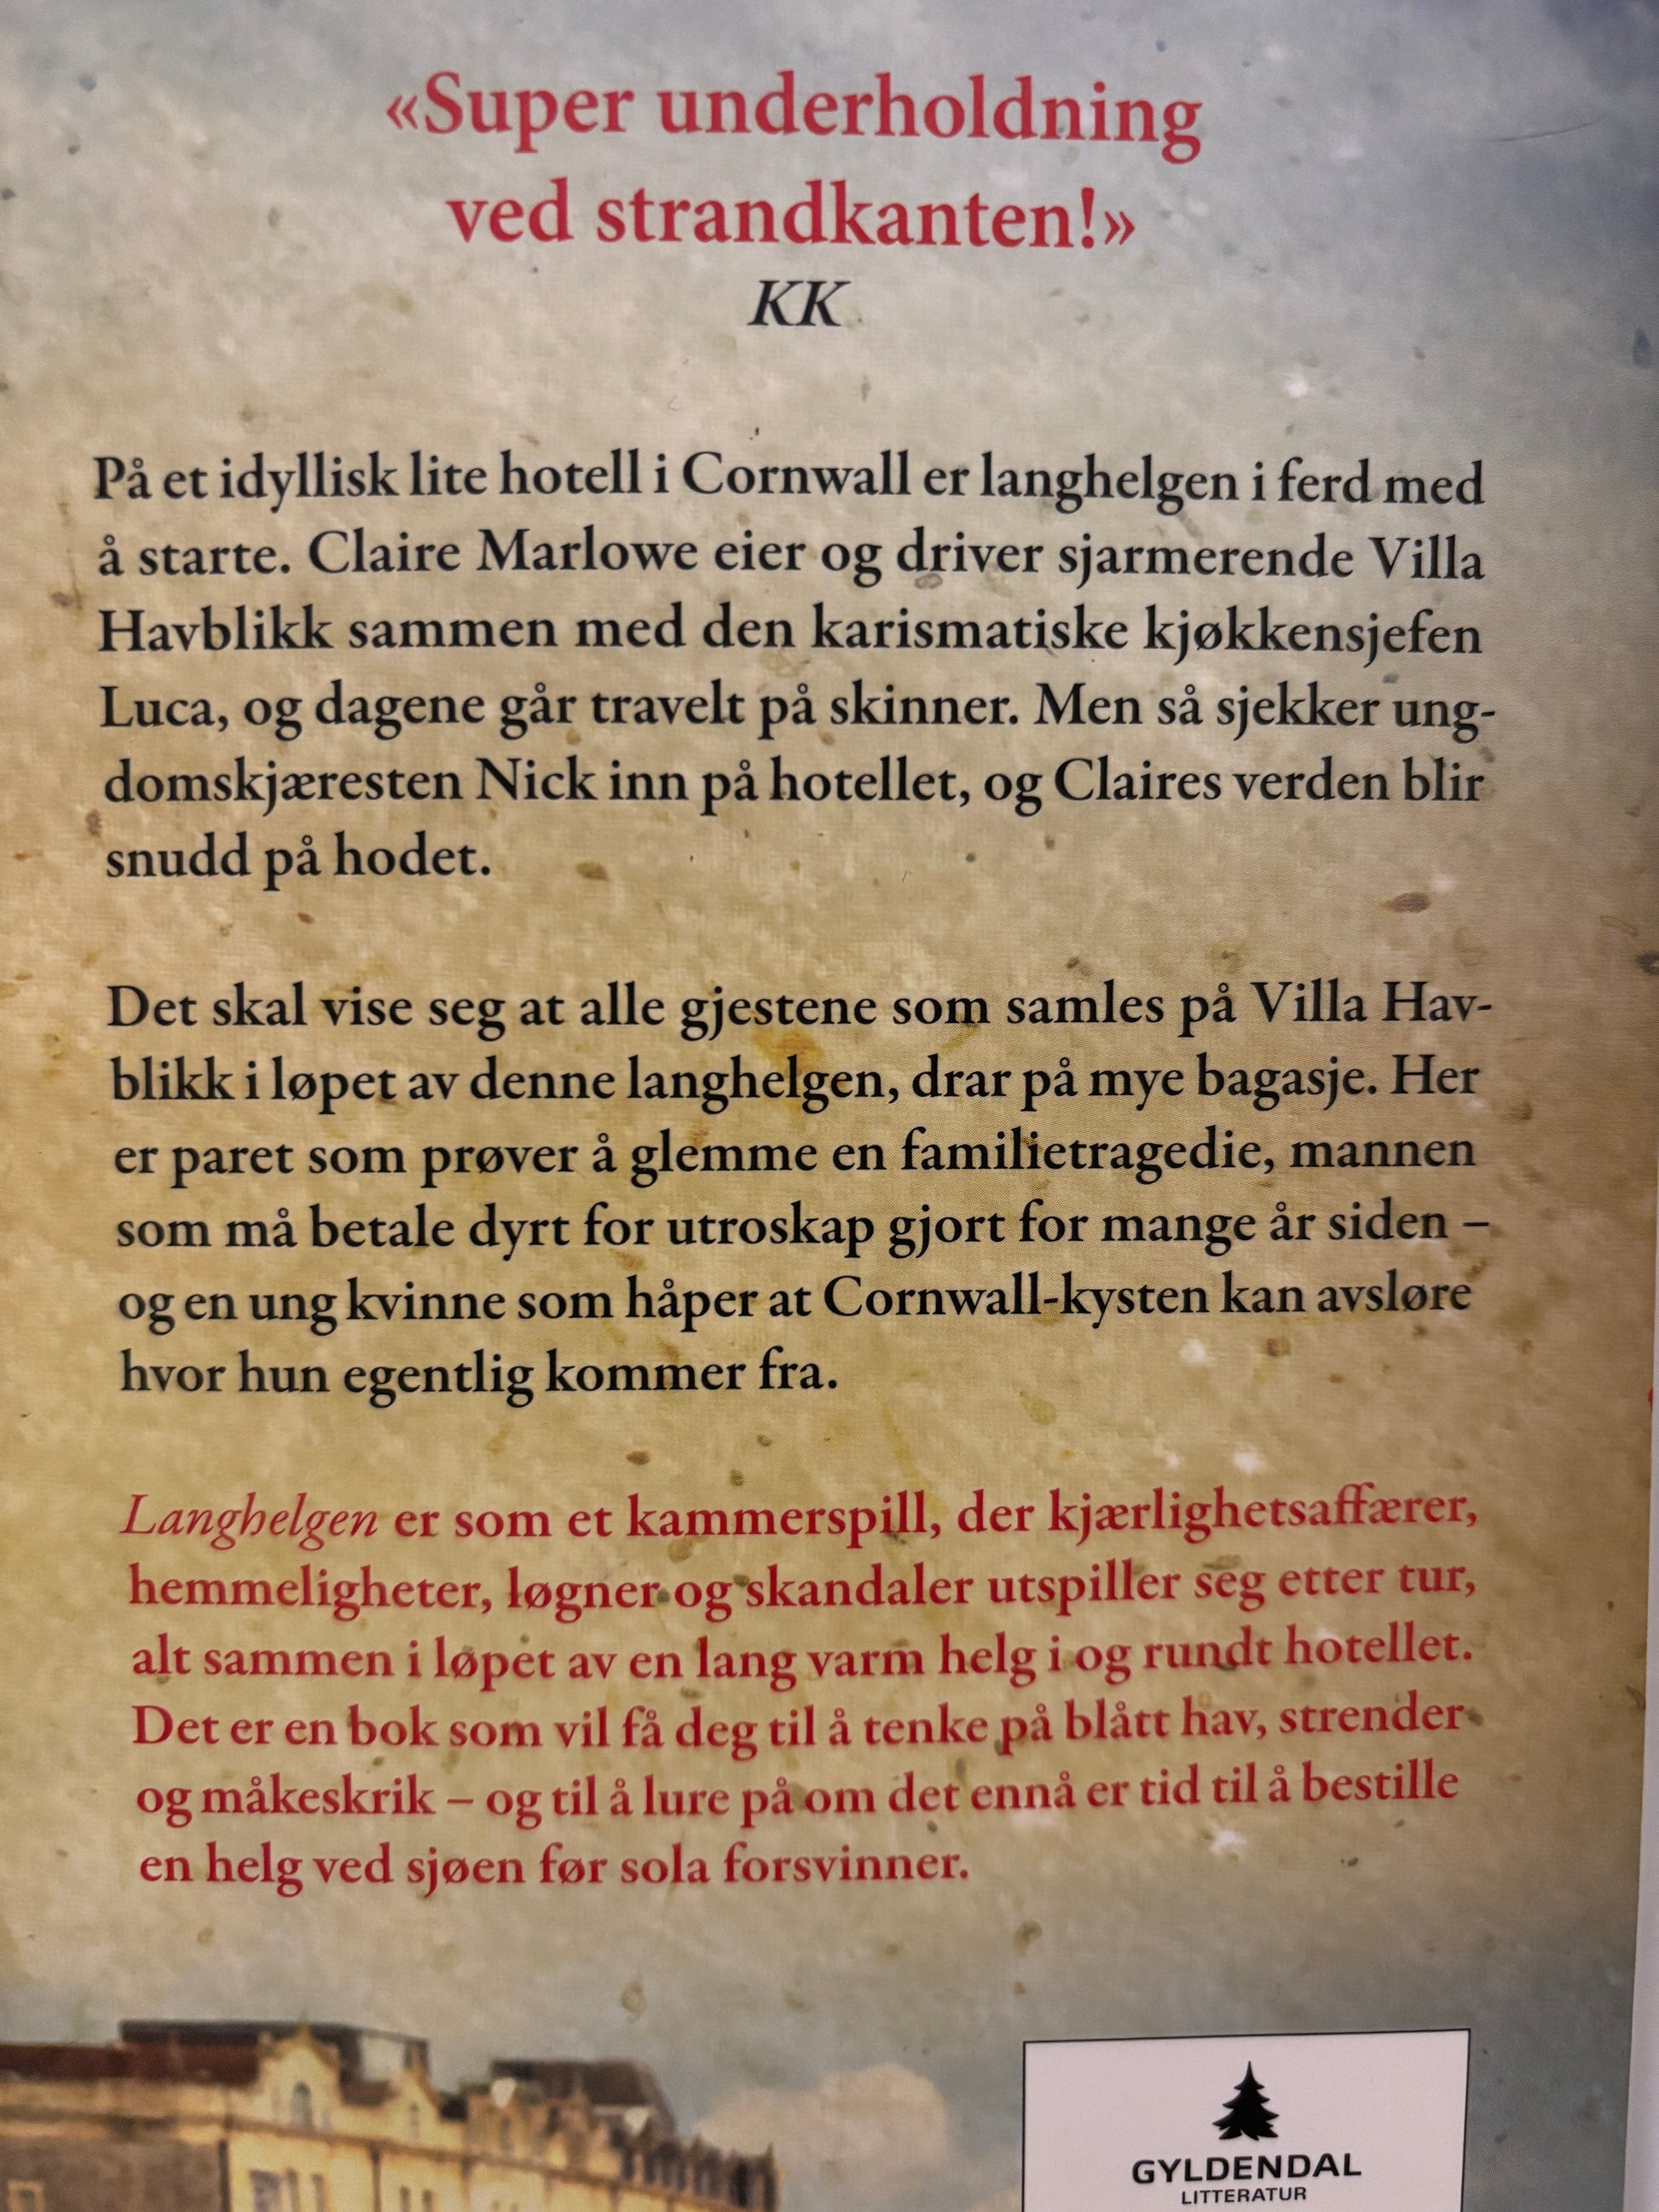 «Super underholdning
ved strandkanten!»
KK
På et idyllisk lite hotell i Cornwall er langhelgen i ferd med
å starte. Claire Marlowe eier og driver sjarmerende Villa
Havblikk sammen med den karismatiske kjøkkensjefen
Luca, og dagene går travelt på skinner. Men så sjekker ung-
domskjæresten Nick inn på hotellet, og Claires verden blir
snudd på hodet.
Det skal vise seg at alle gjestene som samles på Villa Hav-
blikk i løpet av denne langhelgen, drar på mye bagasje. Her
er paret som prøver å glemme en familietragedie, mannen
som må betale dyrt for utroskap gjort for mange år siden –
og en ung kvinne som håper at Cornwall-kysten kan avsløre
hvor hun egentlig kommer fra.
Langhelgen er som et kammerspill, der kjærlighetsaffærer,
hemmeligheter, løgner og skandaler utspiller seg etter tur,
alt sammen i løpet av en lang varm helg i og rundt hotellet.
Det er en bok som vil få deg til å tenke på blått hav, strender
og måkeskrik – og til å lure på om det ennå er tid til å bestille
en helg ved sjøen før sola forsvinner.
GYLDENDAL
LITTERATUR